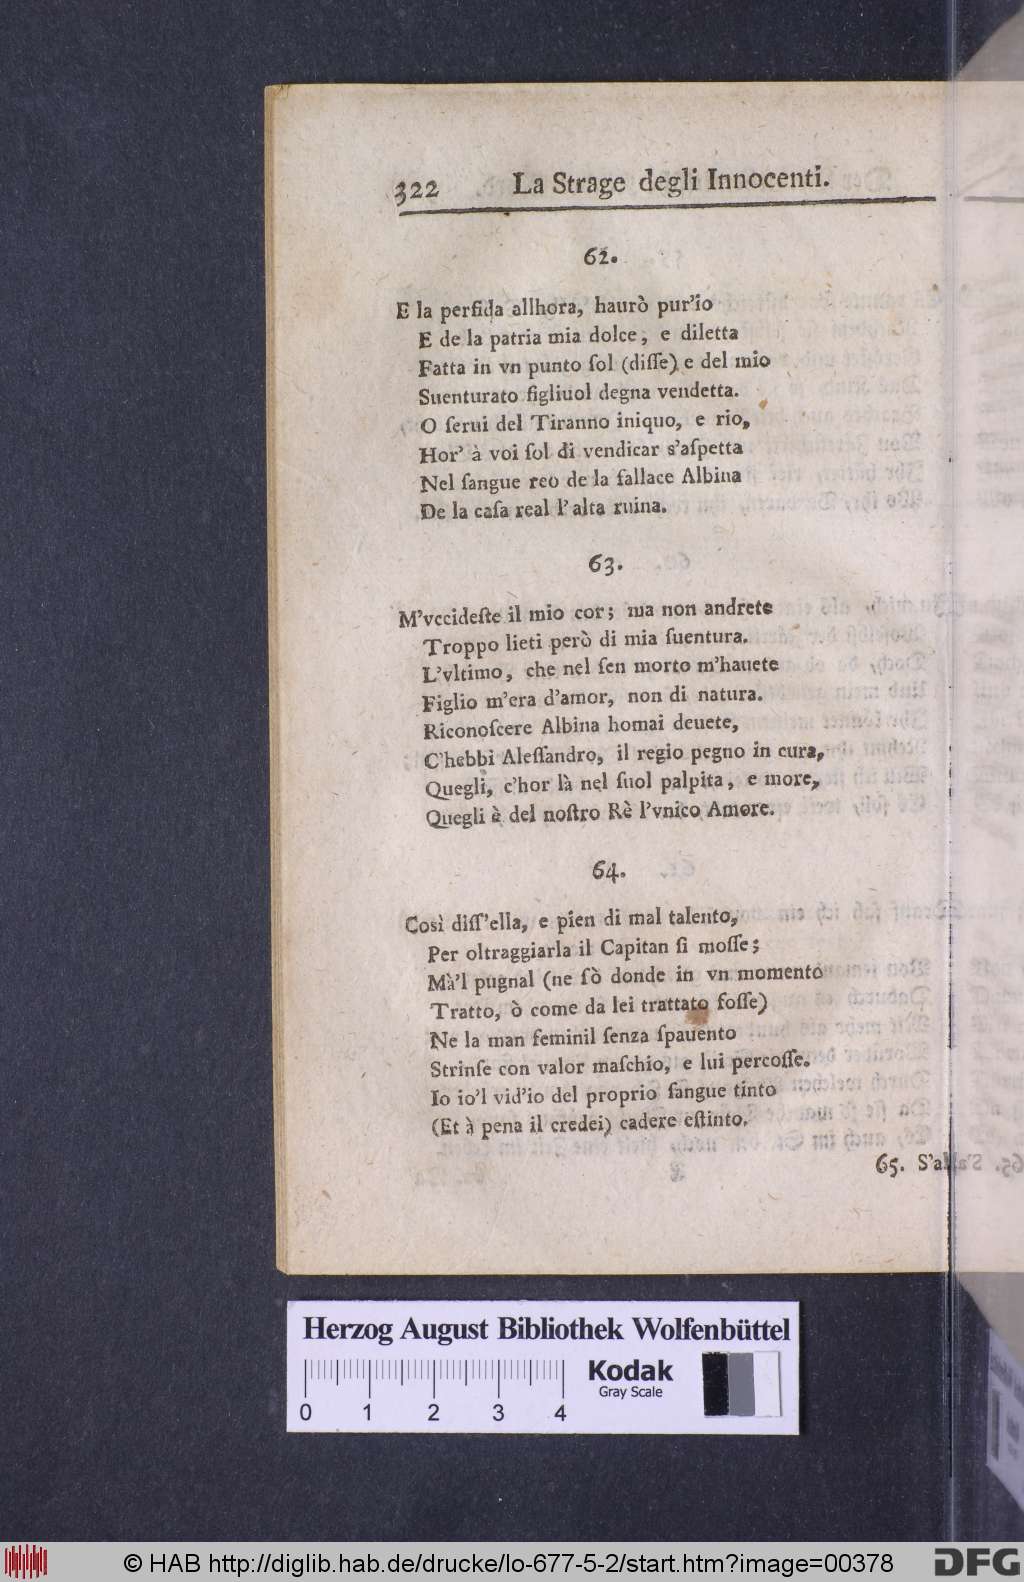 322 La Strage degli Innocenti.
62.
E la perfida allhora, haurò pur'io
E de la patria mia dolce, e diletta
Fatta in vn punto ſol (diſſe) e del mio
Suenturato figliuol degna vendetta.
O ſerui del Tiranno iniquo, e rio,
Hor' à voi ſol di vendicar s'aſpetta
Nel ſangue reo de la fallace Albina
De la caſa real l'alta ruina.
63.
M'vccideſte il mio cor; ma non andrete
Troppo lieti però di mia ſuentura.
L'vltimo, che nel ſen morto m'hauete
Figlio m'era d'amor, non di natura.
Riconoſcere Albina homai deuete,
C'hebbi Aleſſandro, il regio pegno in cura,
Quegli, c'hor là nel ſuol palpita, e more,
Quegli è del noſtro Rè l'vnico Amore.
64.
Così diſſ'ella, e pien di mal talento,
Per oltraggiarla il Capitan ſi moſſe;
Mà'l pugnal (ne ſò donde in vn momento
Tratto, ò come da lei trattato foſſe)
Ne la man feminil ſenza ſpauento
Strinſe con valor maſchio, e lui percoſſe.
Io io'l vid'io del proprio ſangue tinto
(Et à pena il credei) cadere eſtinto.
65.
Herzog August Bibliothek Wolfenbüttel
0 1 2 3 4
Kodak
Gray Scale
© HAB http://diglib.hab.de/drucke/lo-677-5-2/start.htm?image=00378
DFG